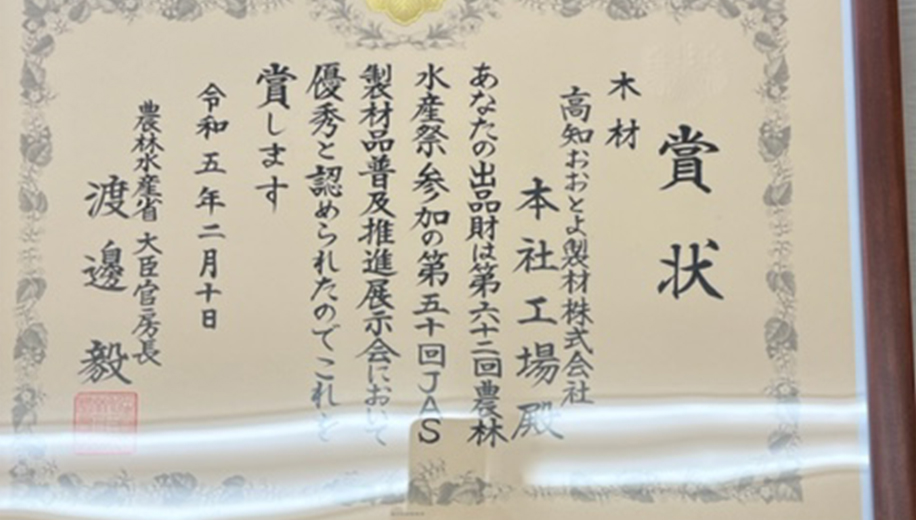 賞状
木材
高知おおとよ製材株式会社
本社工場殿
あなたの出品財は第六十二回農林
水産祭参加の第五十回JAS
製材品普及推進展示会において
優秀と認められたのでこれを
賞します
令和五年二月十日
農林水産省 大臣官房長
渡邊毅